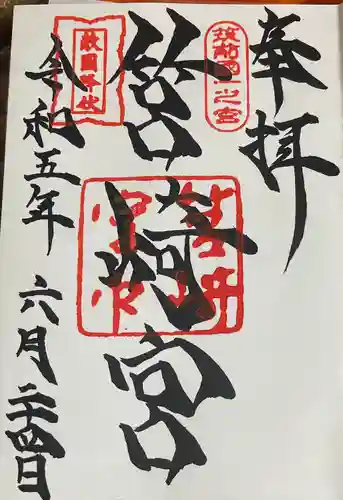 奉拝
筑前國一之宮
筥崎宮
敵國降伏
令和五年 六月二十四日